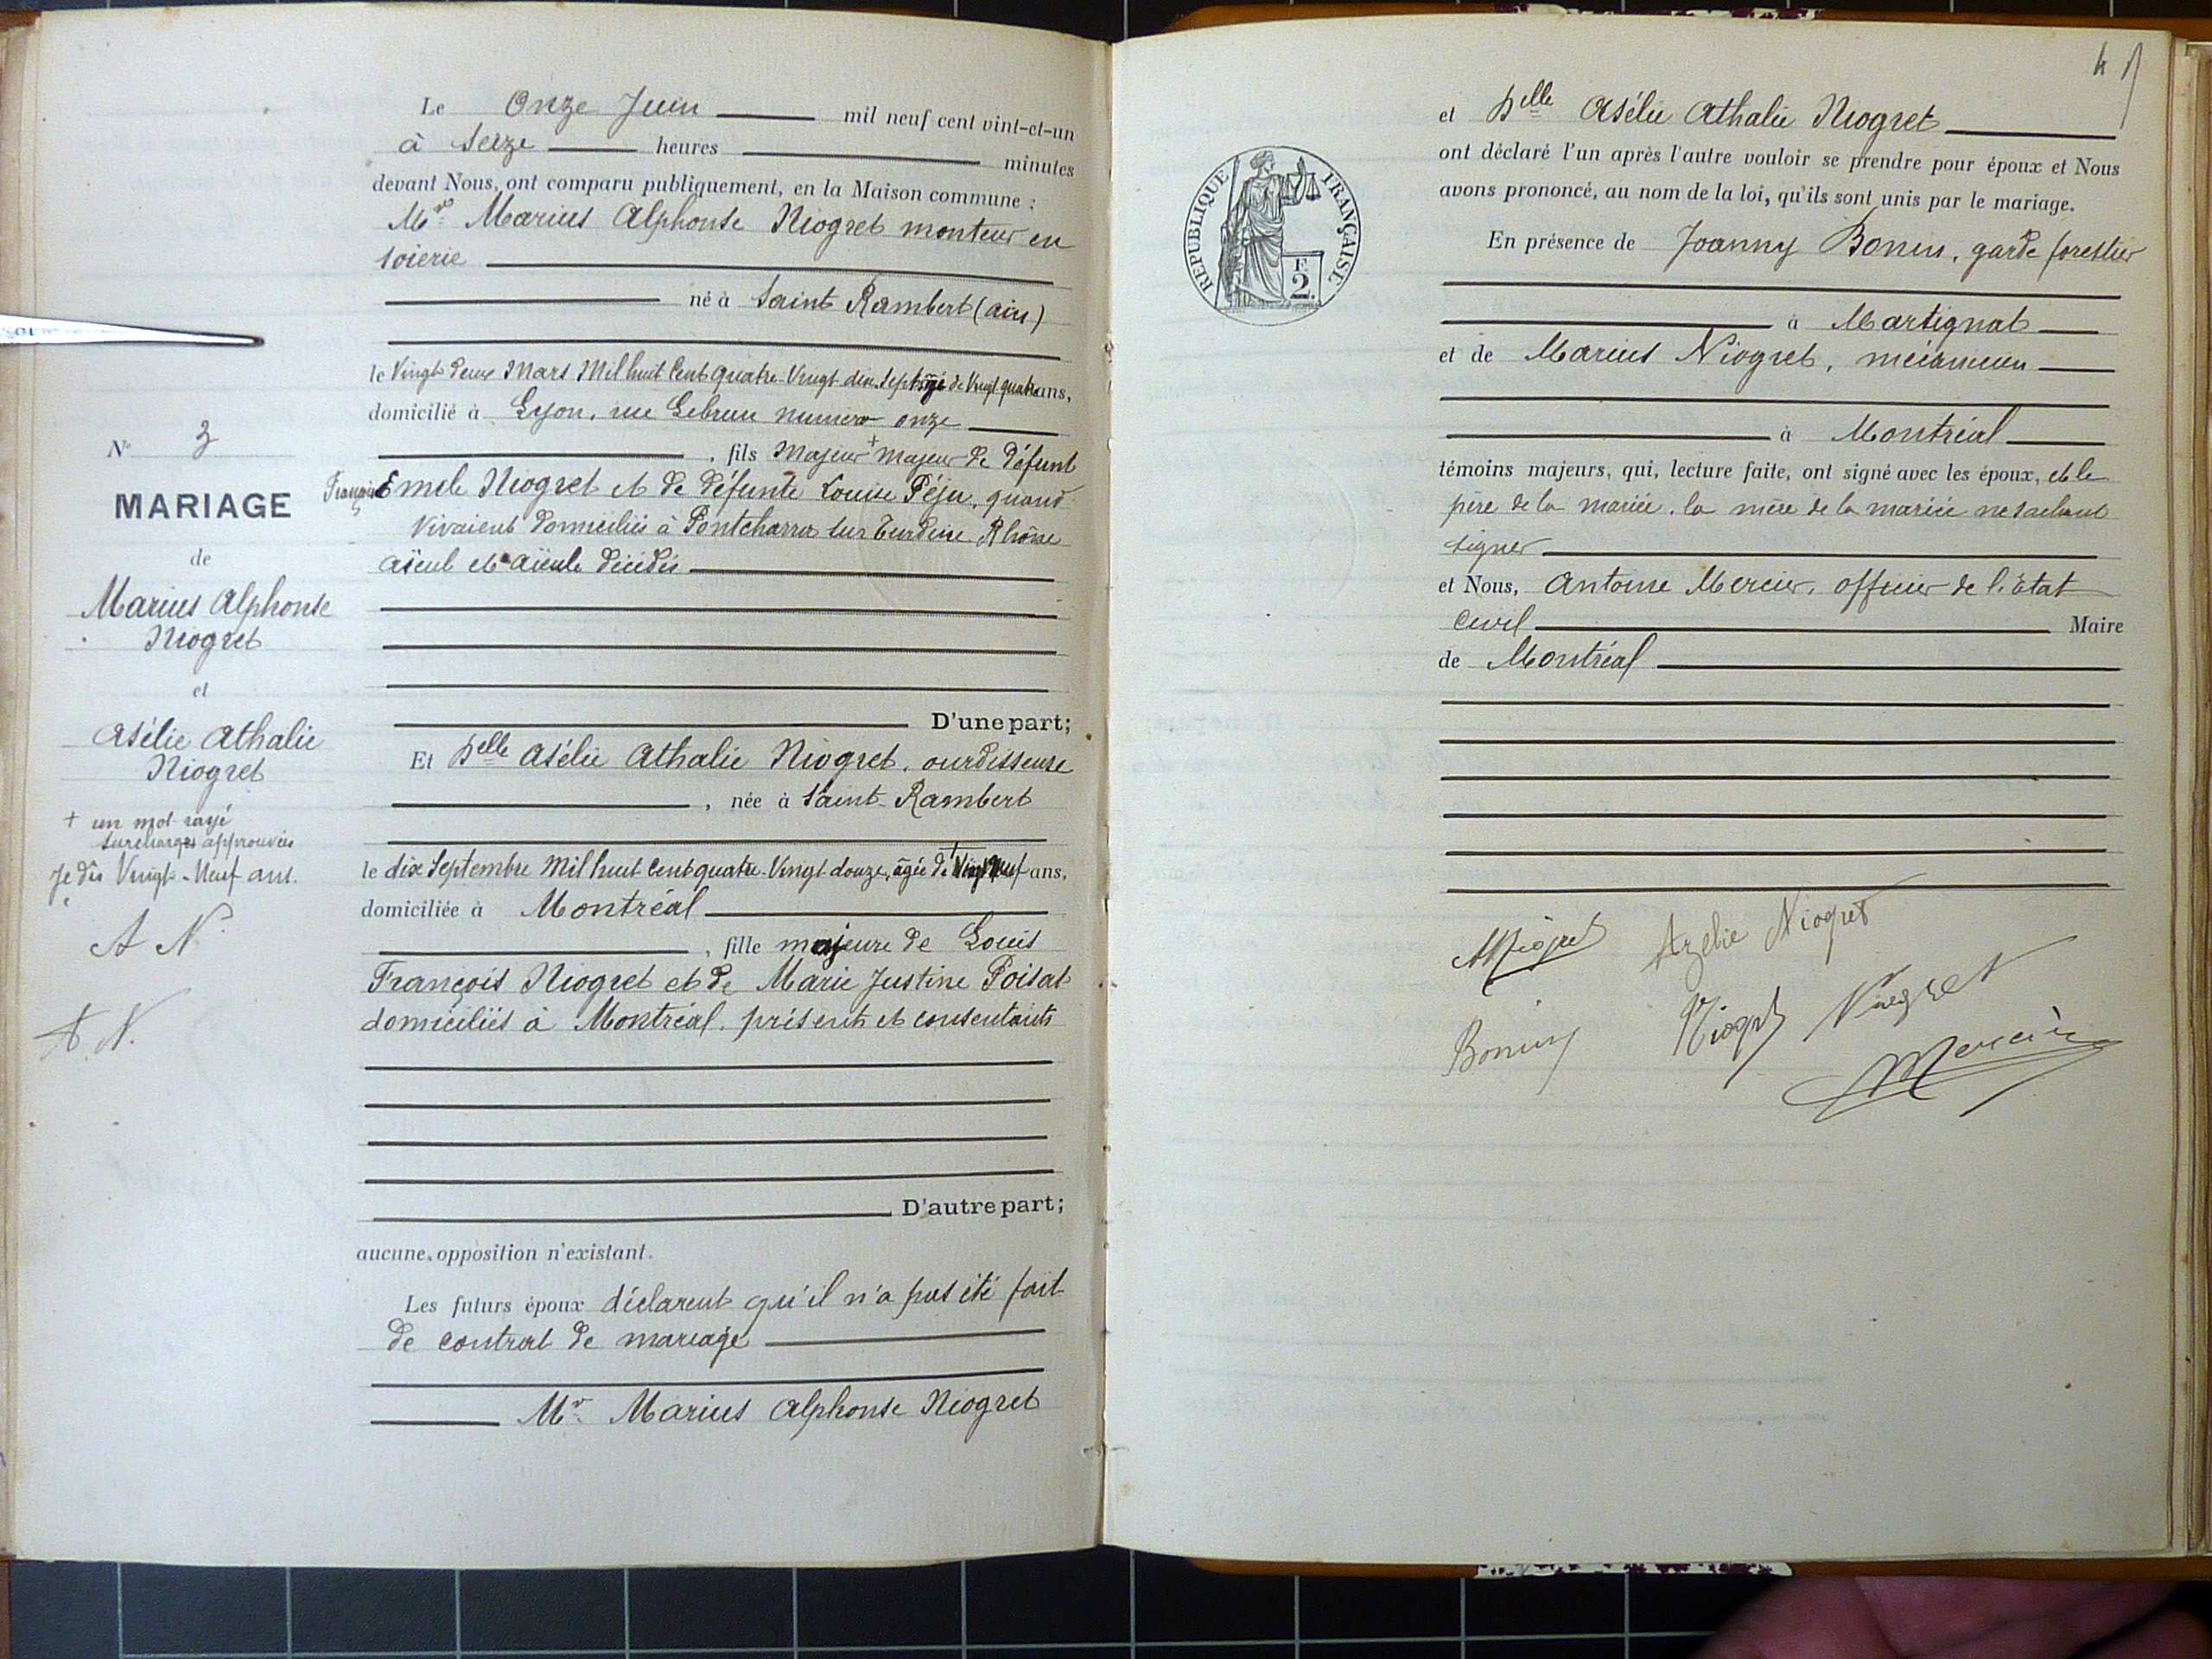 Le Onze Juin mil neuf cent vint-et-un
à Seize heures minutes
devant Nous, ont comparu publiquement, en la Maison commune :
Marius Alphonse Niogret monteur en
soierie
né à Saint Rambert (ain)
le Vingt deux Mars Mil huit Cent quatre-Vingt dix Sept âgé de Vingt quatre ans,
domicilié à Lyon, rue Lebrun numero onze
, fils Majeur + majeur de défunt
François Emile Niogret et de défunte Louise Péju, quand
Vivaient domiciliés à Pontcharra sur Turdine Rhône
aïeul et aïeule décédés
D'une part;
Et Delle Asélie Athalie Niogret, ourdisseuse
, née à Saint-Rambert
le dix Septembre Mil huit Cent quatre-Vingt douze, âgée de + Vingt Neuf ans,
domiciliée à Montréal
, fille majeure de Louis
François Niogret et de Marie Justine Poisat
domiciliés à Montréal, présents et consentants
D'autre part;
aucune opposition n'existant.
Les futurs époux déclarent qu'il n'a pas été fait
de contrat de mariage
Mr Marius Alphonse Niogret
N° 3
MARIAGE
de
Marius Alphonse
Niogret
et
Asélie Athalie
Niogret
+ un mot rayé
surcharges approuvées
Je dis Vingt-Neuf ans.
A N
A. N.
et Delle Asélie Athalie Niogret
ont déclaré l'un après l'autre vouloir se prendre pour époux et Nous
avons prononcé, au nom de la loi, qu'ils sont unis par le mariage.
En présence de Joanny Bonin, garde forestier
à Martignat
et de Marius Niogret,
à Montréal
témoins majeurs, qui, lecture faite, ont signé avec les époux, et le
père de la mariée. la mère de la mariée ne sachant
signer
et Nous, Antoine Mercier, officier de l'Etat
Civil Maire
de Montréal
RÉPUBLIQUE FRANÇAISE
F
2
Niogret Azelie Niogret
Bonin Niogret Niogret
Mercier